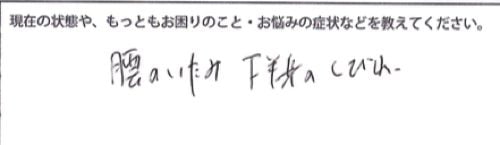 現在の状態や、もっともお困りのこと・お悩みの症状などを教えてください。
腰のいたみ 下半身のしびれ